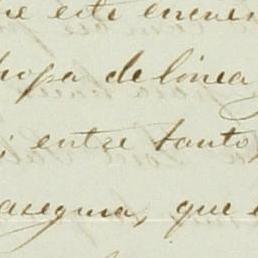 que este encuen
tropa de linea
; entre tanto
asegura, que e